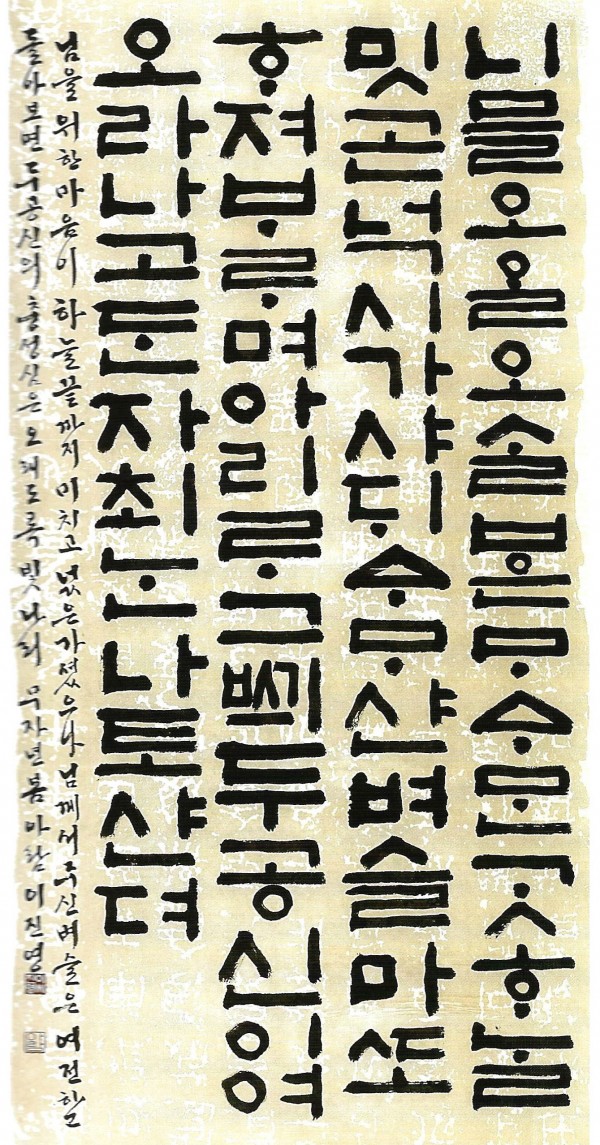 니믈오올오ᄉᆞᆯᄫᆞᆫᄆᆞᅀᆞᄆᆞᆫᄀᆞᇫᄒᆞᄂᆞᆯ
밋곤넉시가샤ᄃᆡᅀᆞᄆᆞ샨벼슬마ᄯᅩ
ᄒᆞ져ᄇᆞᄅᆞ며아리ᄅᆞ그ᄢᅴ두공신여
오라나고ᄃᆞᆫ자최ᄂᆞᆫ나토샨뎌
님을 위한 마음이 하늘끝까지 미치고 넋은 가셨으나 님께서 주산 벼슬은 여전한
돌아보면 두 공신의 충성심은 오래도록 빛나리 무자년봄 이진영